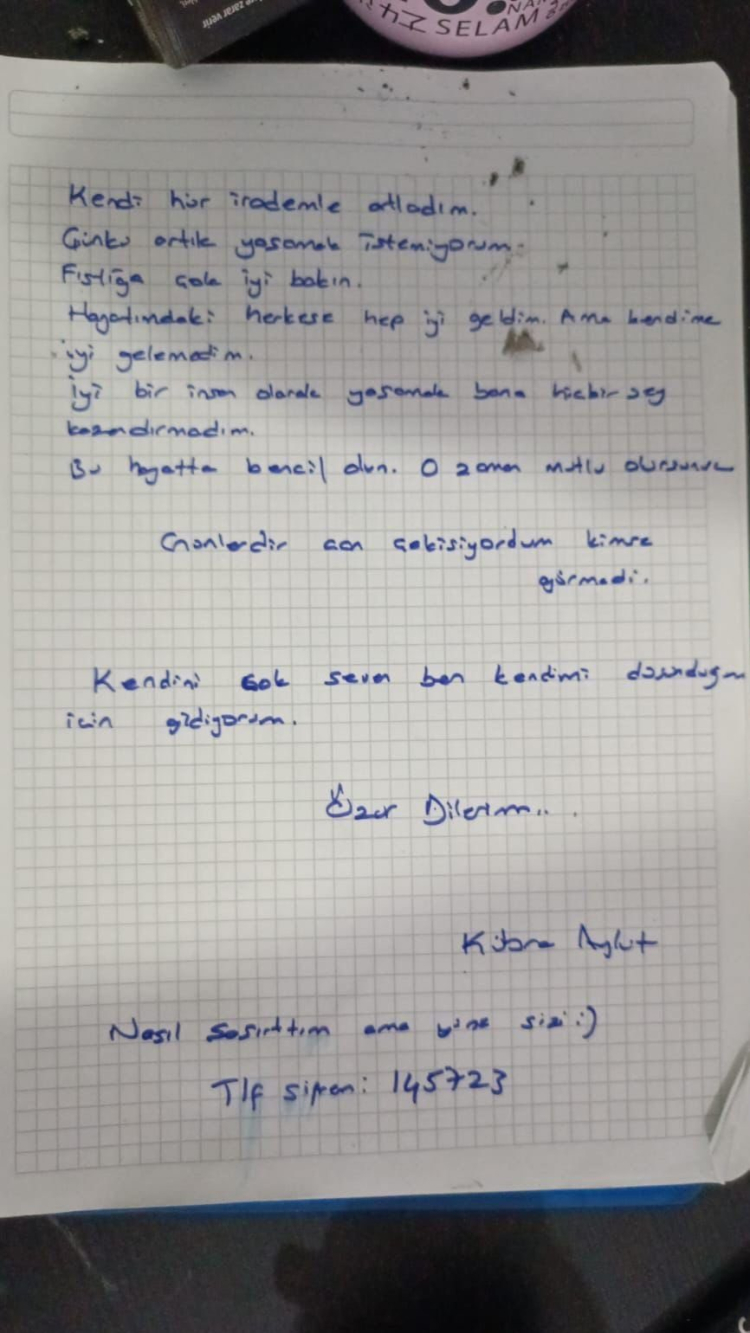 zarar verir
SELAM
Kendi hür irademle atladım.
Çünkü artık yaşamak istemiyorum.
Fıstığa çok iyi bakın.
Hayatımdaki herkese hep iyi geldim. Ama kendime
iyi gelemedim.
İyi bir insan olarak yaşamak bana hiçbir şey
kazandırmadım.
Bu hayatta bencil olun. O zaman mutlu olursunuz
Günlerdir can çekişiyordum kimse
görmedi.
Kendini çok seven ben kendimi düşündüğüm
için gidiyorum.
Özür Dilerim...
Kübra Aykut
Nasıl şaşırttım ama yine sizi :)
Tlf şifrem: 145723